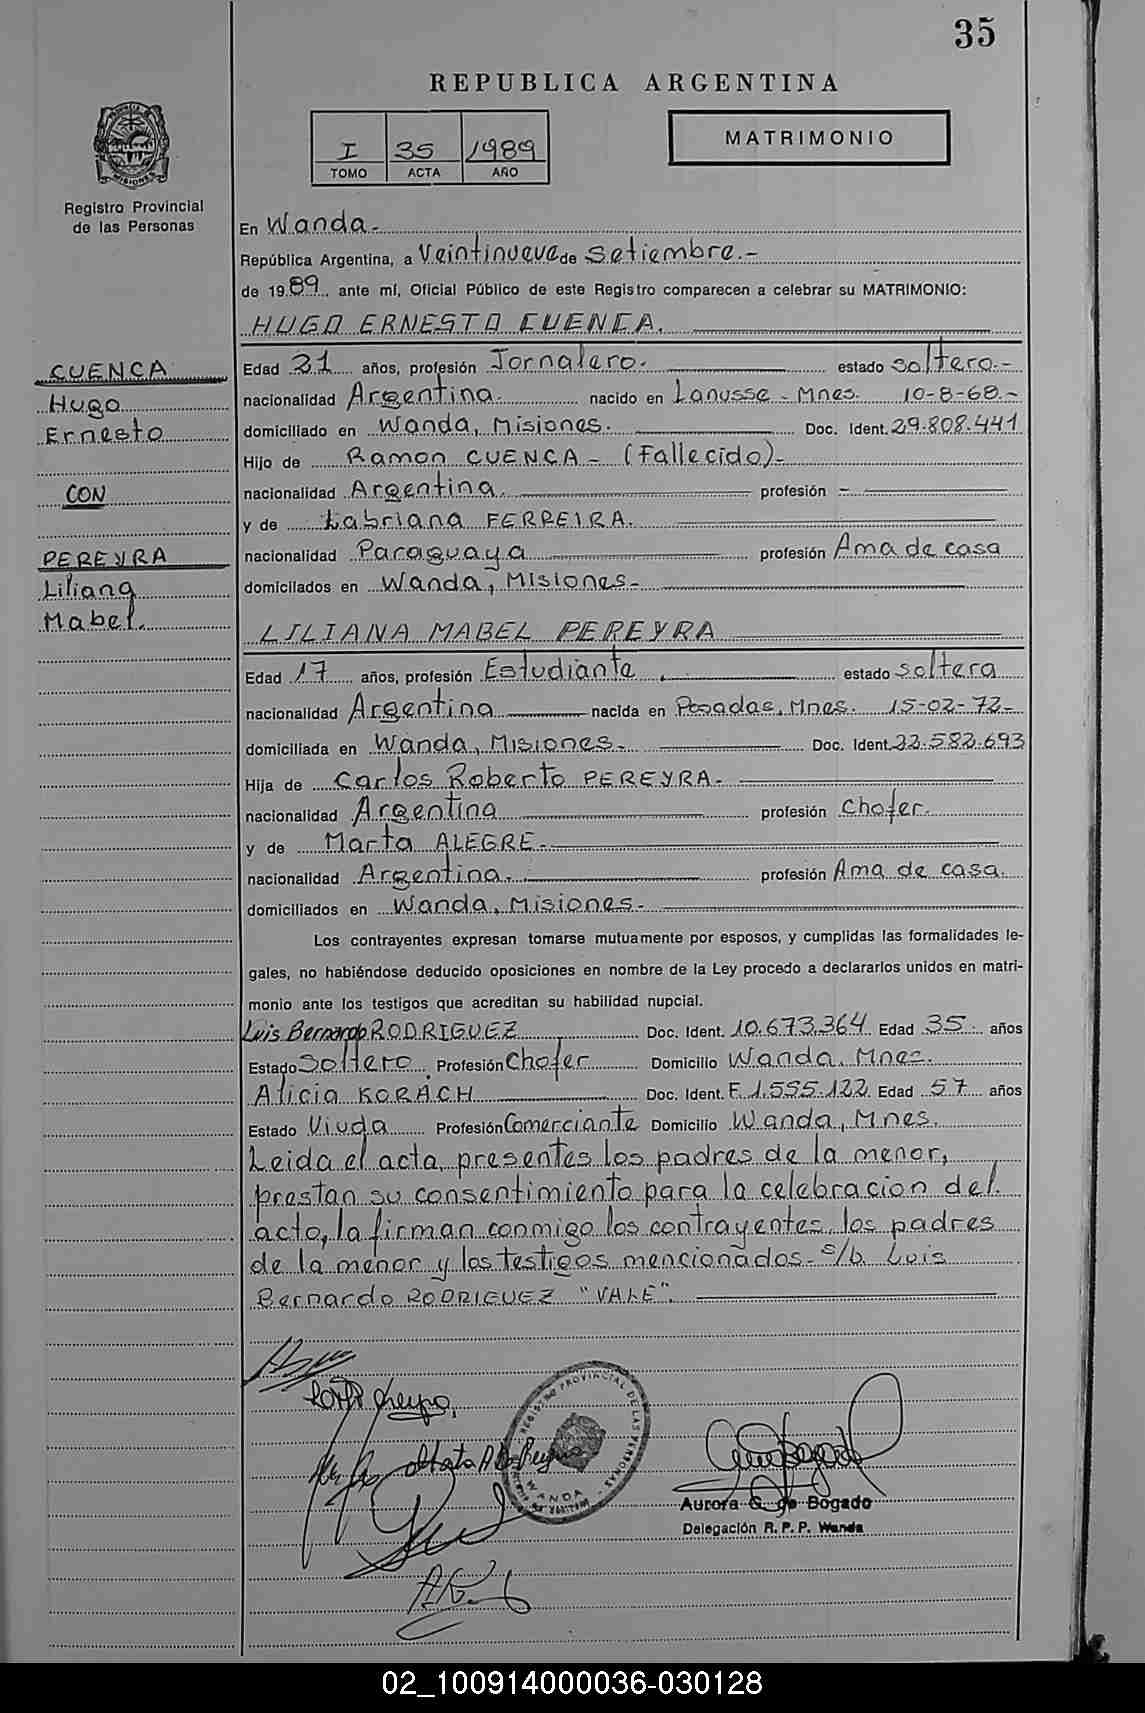 35
REPUBLICA ARGENTINA
I 35 1989
TOMO ACTA AÑO
MATRIMONIO
Registro Provincial
de las Personas
En Wanda.-
República Argentina, a Veintinueve de Setiembre.-
de 1989 ante mí, Oficial Público de este Registro comparecen a celebrar su MATRIMONIO:
HUGO ERNESTO CUENCA.
CUENCA
Hugo
Ernesto
CON
PEREYRA
Liliana
Mabel.
Edad 21 años, profesión Jornalero.- estado soltero.-
nacionalidad Argentina. nacido en Lanusse - Mnes. 10-8-68.-
domiciliado en Wanda, Misiones. Doc. Ident. 29.808.441
Hijo de Ramon CUENCA - (Fallecido)-
nacionalidad Argentina. profesión -
y de FERREIRA.
nacionalidad Paraguaya profesión Ama de casa
domiciliados en Wanda, Misiones-
LILIANA MABEL PEREYRA
Edad 17 años, profesión Estudiante estado soltera
nacionalidad Argentina nacida en Posadas, Mnes. 15-02-72-
domiciliada en Wanda, Misiones- Doc. Ident. 22.582.693
Hija de Carlos Roberto PEREYRA-
nacionalidad Argentina profesión Chofer.
y de Marta ALEGRE-
nacionalidad Argentina.- profesión Ama de casa.
domiciliados en Wanda, Misiones-
Los contrayentes expresan tomarse mutuamente por esposos, y cumplidas las formalidades le-
gales, no habiéndose deducido oposiciones en nombre de la Ley procedo a declararlos unidos en matri-
monio ante los testigos que acreditan su habilidad nupcial.
Luis Bernardo RODRIGUEZ Doc. Ident. 10.673.364 Edad 35 años
Estado Soltero Profesión Chofer Domicilio Wanda, Mnes.
Alicia KORACH Doc. Ident. F.1.555.122 Edad 57 años
Estado Viuda Profesión Comerciante Domicilio Wanda, Mnes.
Leida el acta, presentes los padres de la menor,
prestan su consentimiento para la celebracion del
acto, la firman conmigo los contrayentes, los padres
de la menor y los testigos mencionados- s/b. Luis
Bernardo RODRIGUEZ "VALE".
REGISTRO PROVINCIAL DE LAS PERSONAS
WANDA
Aurora G. de Bogado
Delegación R. P. P. Wanda
02_100914000036-030128